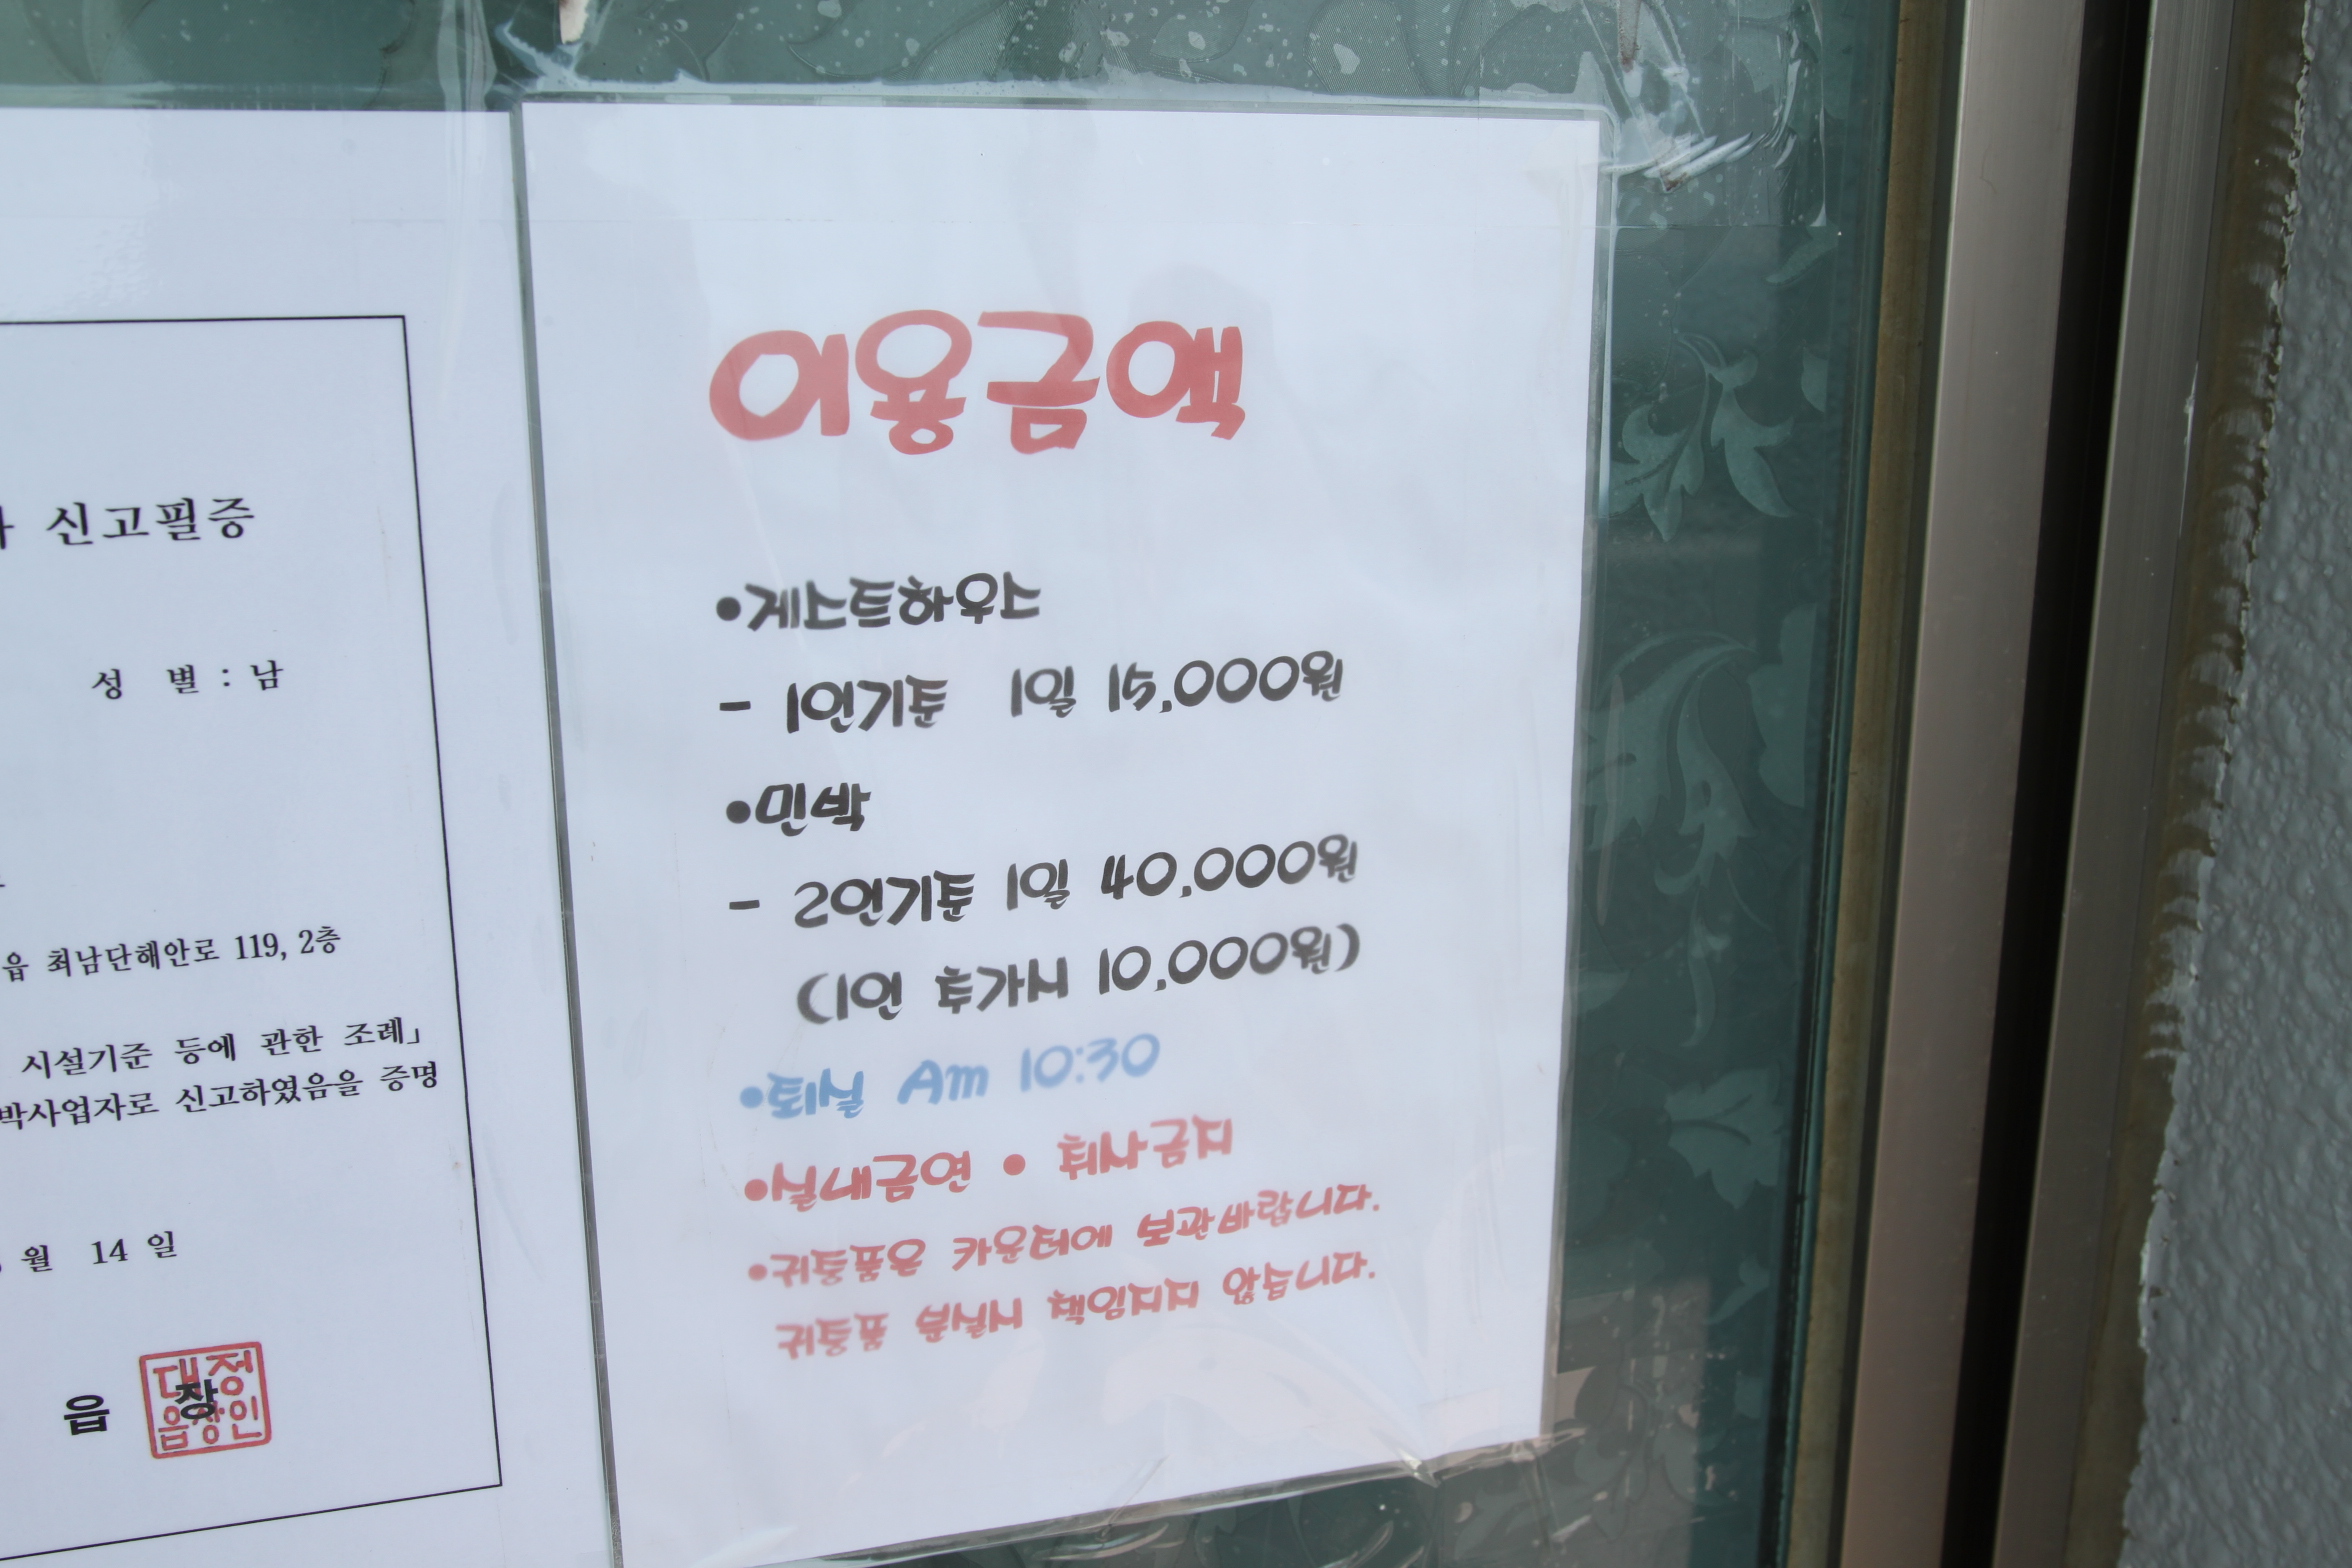 이용금액
•게스트하우스
- 1인기준 1일 15,000원
•민박
- 2인기준 1일 40,000원
(1인 추가시 10,000원)
•퇴실 Am 10:30
•실내금연 • 취사금지
•귀중품은 카운터에 보관바랍니다.
귀중품 분실시 책임지지 않습니다.
신고필증
성 별 : 남
읍 최남단해안로 119, 2층
시설기준 등에 관한 조례」
박사업자로 신고하였음을 증명
월 14 일
읍 장
대정
읍장인